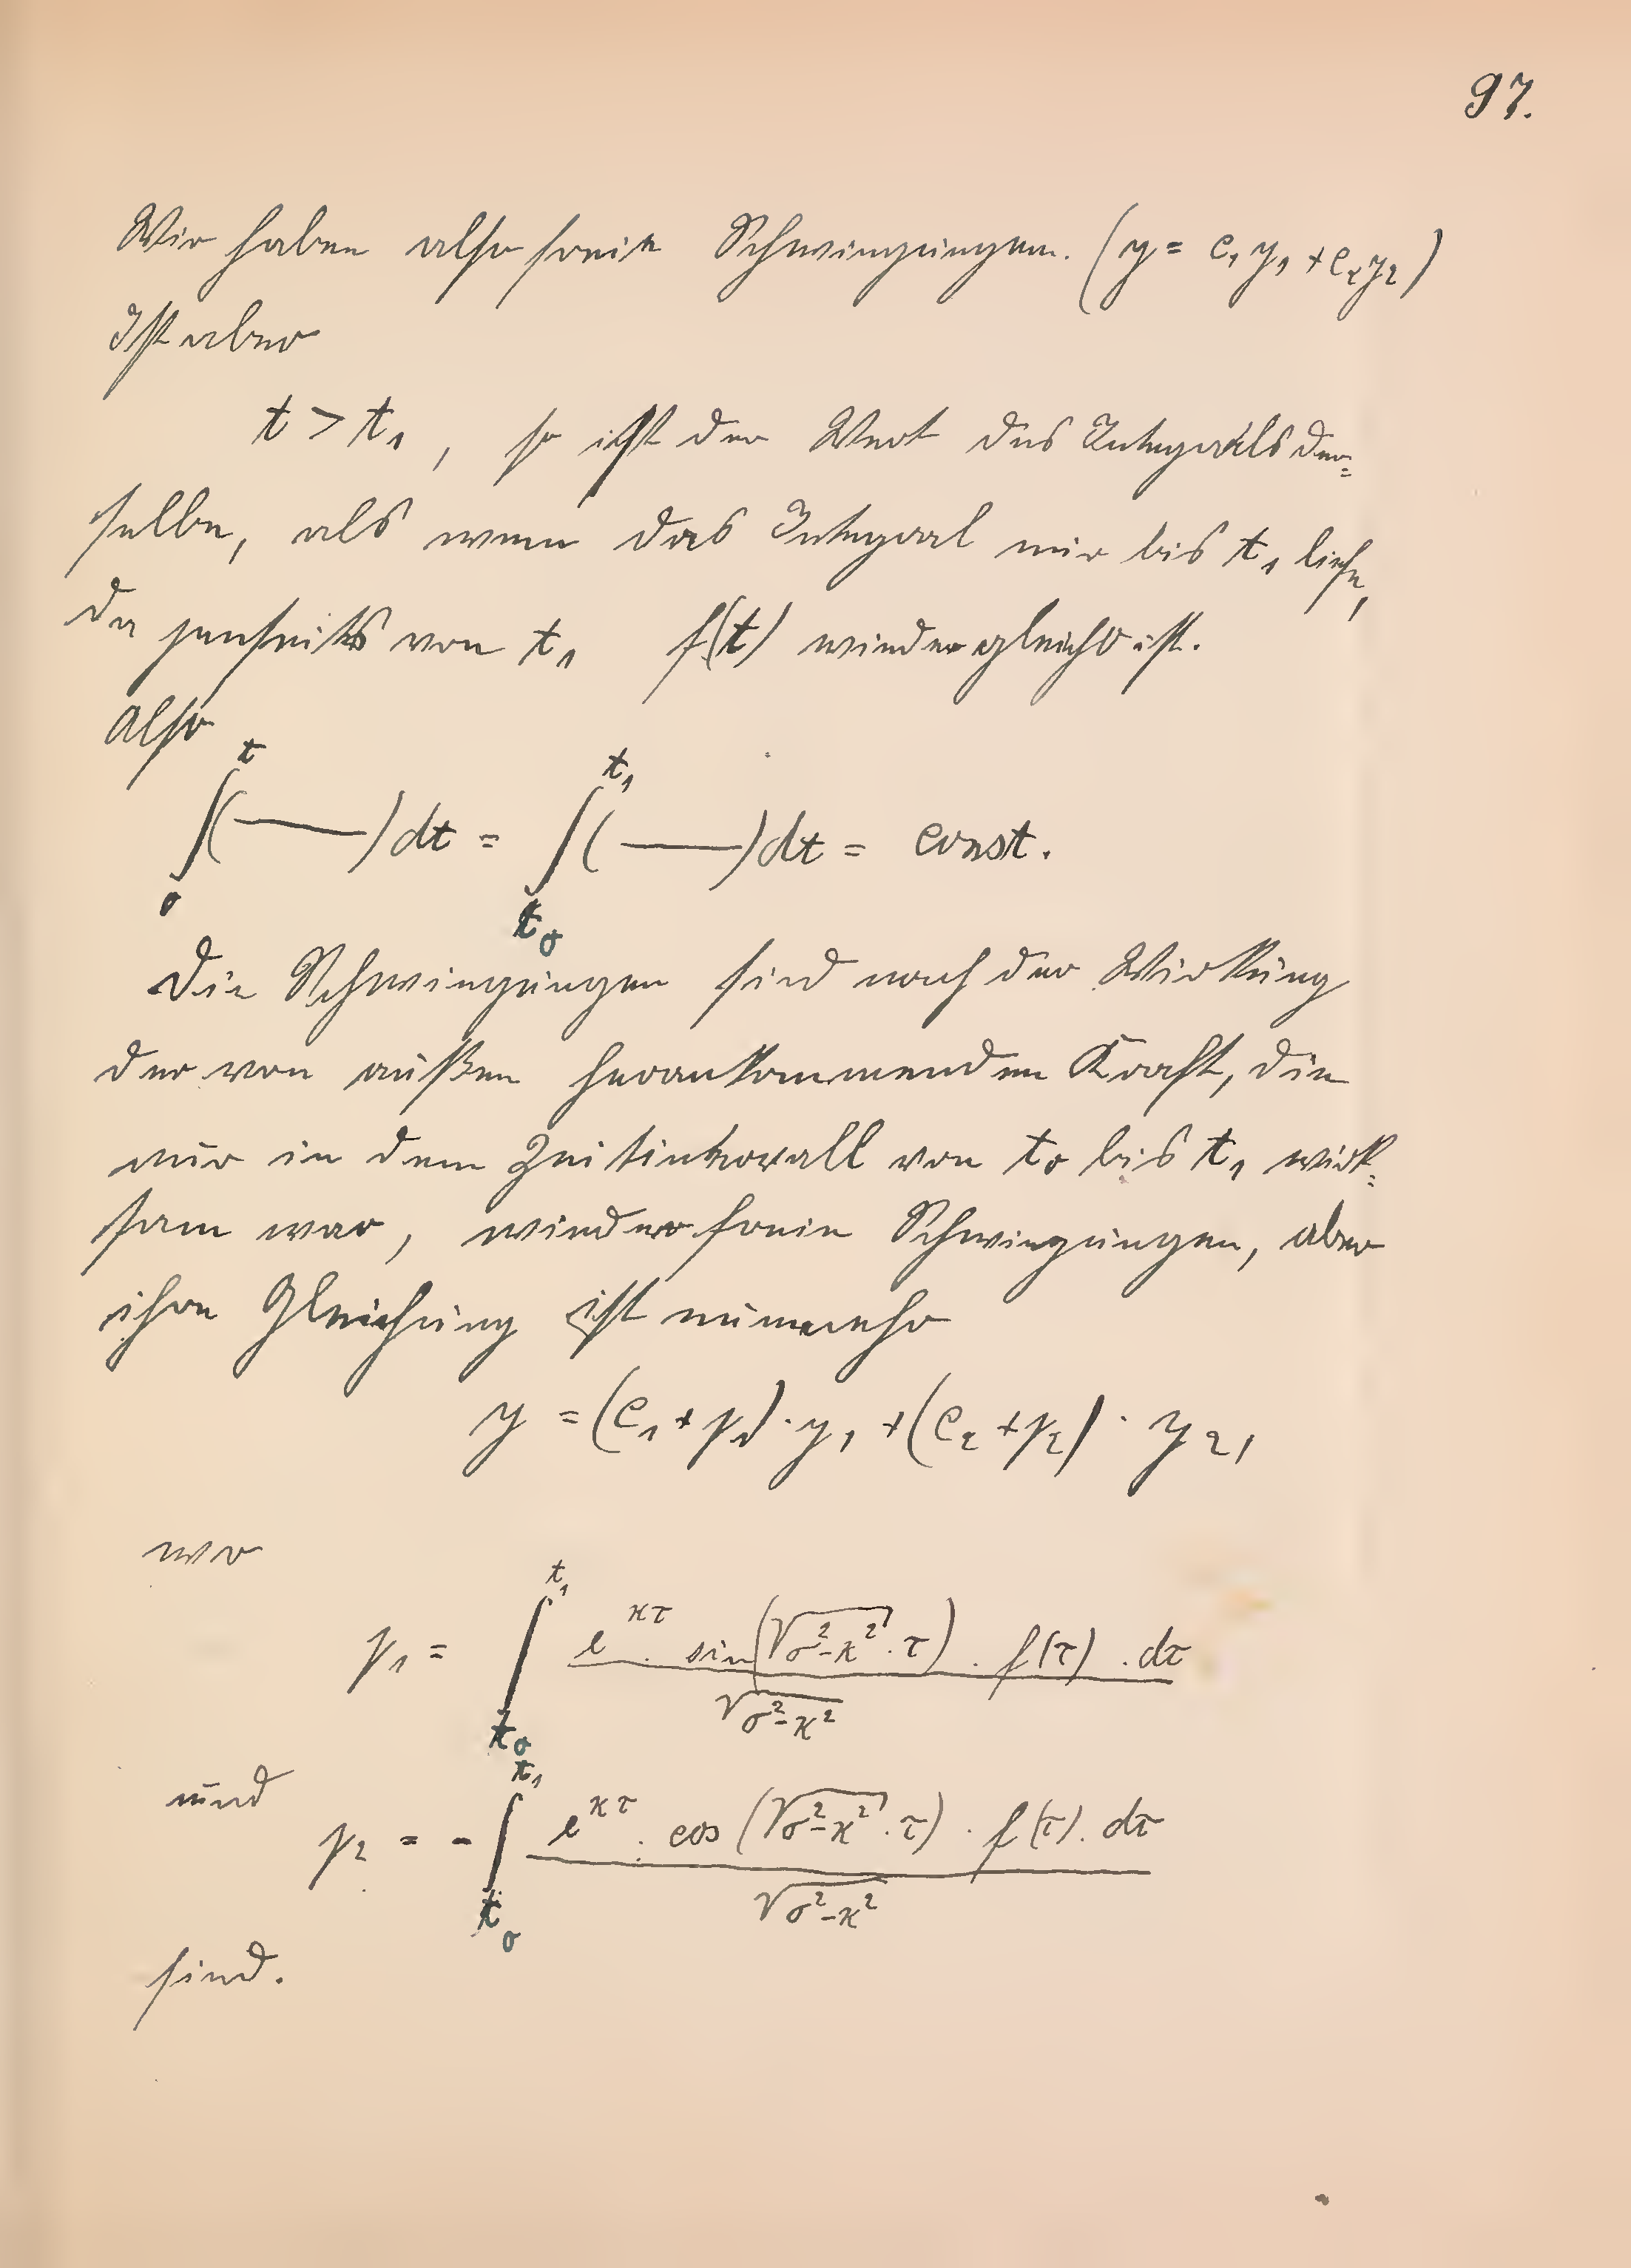 97.
Wir haben also freie Schwingungen. (y = c₁y₁ + c₂y₂)
Ist aber
t > t₁ , so ist der Wert des Integrals der=
selbe, als wenn das Integral nur bis t₁ liefe,
da jenseits von t₁ f(t) wieder gleich 0 ist.
Also
∫₀ᵗ (———) dt = ∫_{t₀}^{t₁} (———) dt = const.
Die Schwingungen sind nach der Wirkung
der von außen herankommenden Kraft, die
nur in dem Zeitintervall von t₀ bis t₁ wirk=
sam war, wieder freie Schwingungen, aber
ihre Gleichung ist nunmehr
y = (c₁ + γ₁) · y₁ + (c₂ + γ₂) · y₂,
wo
γ₁ = ∫_{t₀}^{t₁} e^{κτ} · sin(√(σ²-κ²) · τ) · f(τ) · dτ / √(σ²-κ²)
und
γ₂ = - ∫_{t₀}^{t₁} e^{κτ} · cos(√(σ²-κ²) · τ) · f(τ) · dτ / √(σ²-κ²)
sind.